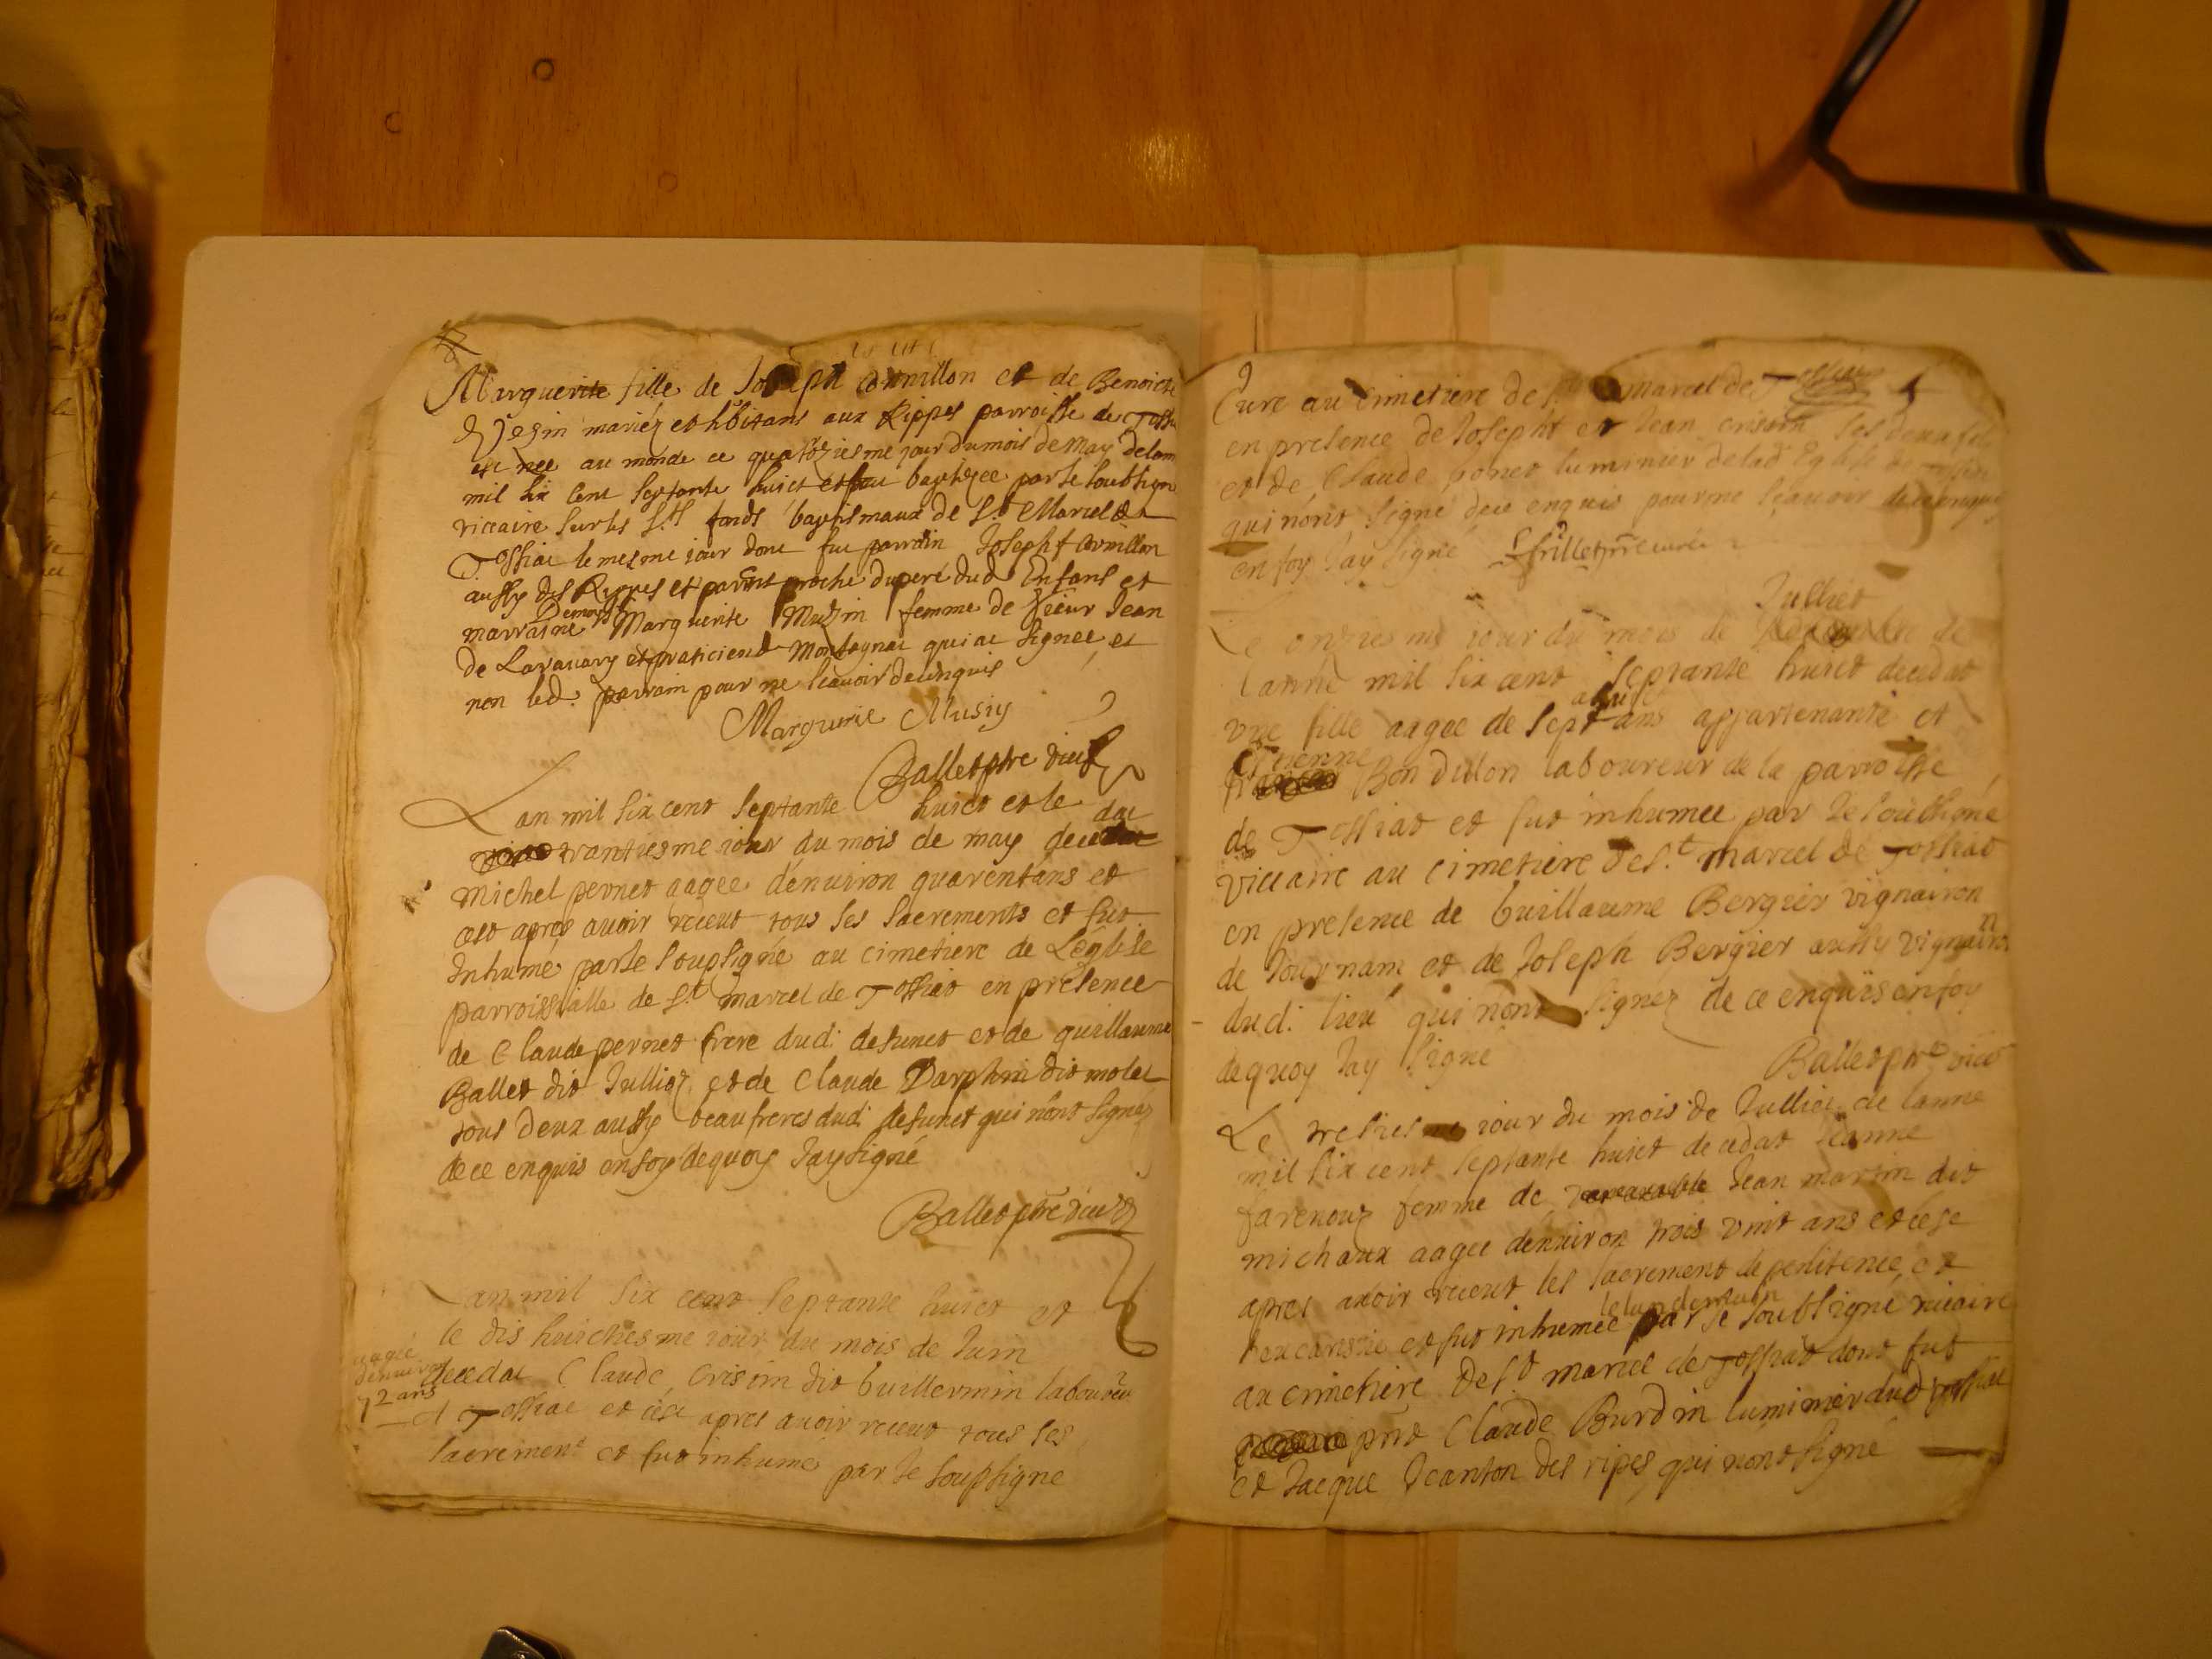 Marguerite fille de Joseph Convillon et de Benoiste
mariéz et hbitans aux Rippes parroisse de Tossia
est nee au monde ce quatorziesme jour du mois de May de lan
mil six cent septante huict et fut baptizee par le soubsigne
viccaire sur les Sts fonds baptismaux de St Marcel de
Tossiac le mesme iour dont fut parrain Joseph Convillon
aussy des Rippes et parent proche du pere dud Enfant et
marraine Demoys Marguerite Muzin femme de sieur Jean
de Lavavary et praticient Montagnat qui at signee et
non led. parrain pour ne scavoir de enquis
Marguerite Musiy
Ballet ptre vict
Lan mil six cent septante huict et le
trantiesme iour du mois de may decedat
Michel pernet aagee denuiron quarent ans et
cest apres auoir receut tous les sacrements et fut
Inhumé par le soupsigné au cimetiere de Léglise
parroissialle de St marcel de Tossiat en présence
de Claude pernet frere dud. defunct et de guillaume
Ballet dit Julliez et de Claude Darphin dit molet
tous deux aussy beaufreres dud. defunct qui nont signéz
de ce enquis en foy dequoy Jay signé
Ballet ptre vict
Lan mil six cent septante huict et
le dis huictiesme iour du mois de Juin
aagée denuiron 72 ans
decedat Claude crisin dit Guillermin laboureur
A Tossiac et cest apres auoir receut tous les
sacrement et fut inhumé par le soupsigne
Cure au cimetiere de St Marcel de Tossiat
en presence de Joseph et Jean crisin ses deux fils
et de Claude ponet luminier de lad Eglise de
qui nont signé de ce enquis pour ne scauoir
en foy Jay signé
Julliet
Le onziesme iour du mois de de
lanné mil six cent septante huict decedat
vne fille aagee de sept a huit ans appartenante et
Etienne Bon dillon laboureur de la parroisse
de Tossiat et fut inhumee par le soubsigné
viccaire au cimetiere de St marcel de Tossiat
en presence de Guillaume Bergier vignairon
de Journam et de Joseph Bergier aussy vignairon
dud. lieu qui nont signez de ce enquis en foy
dequoy Jay signé
Ballet ptre vict
Le tresiesme iour du mois de Julliet de lanne
mil six cent septante huict decedat Jeanne
farenouz femme de Jean martin dit
michaux aagee denuiron trois vint ans et cest
apres auoir receut les sacrement de penitence et
leucaristie et fut inhumee le lundemain par le soubsigné vicaire
au cimetiere de St marcel de Tossiat dont fut
pnt Claude Burdin luminier dud Tossiat
et Jacque Jeanton des ripes qui nont signé